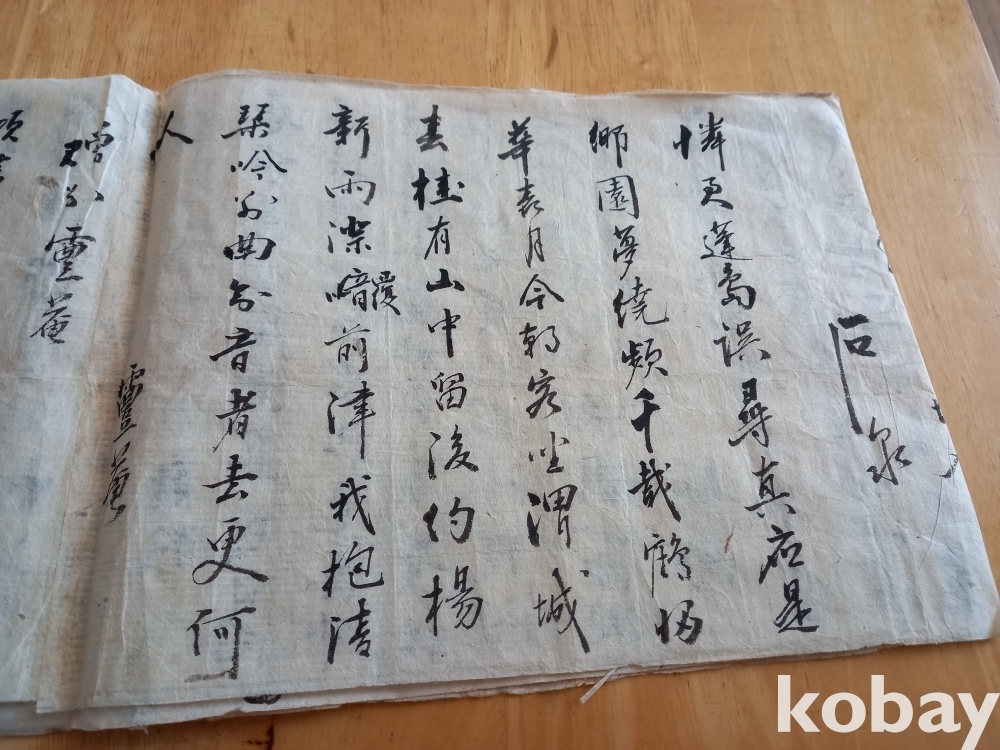 石泉
憐更蓬島誤尋真应是
鄉園夢繞頻千載鶴歸
華表月今朝客坐渭城
春桂有山中留後約楊
新雨暗覆前津我抱清
琴吟別曲知音者去更何
人
菴
贈別雲菴